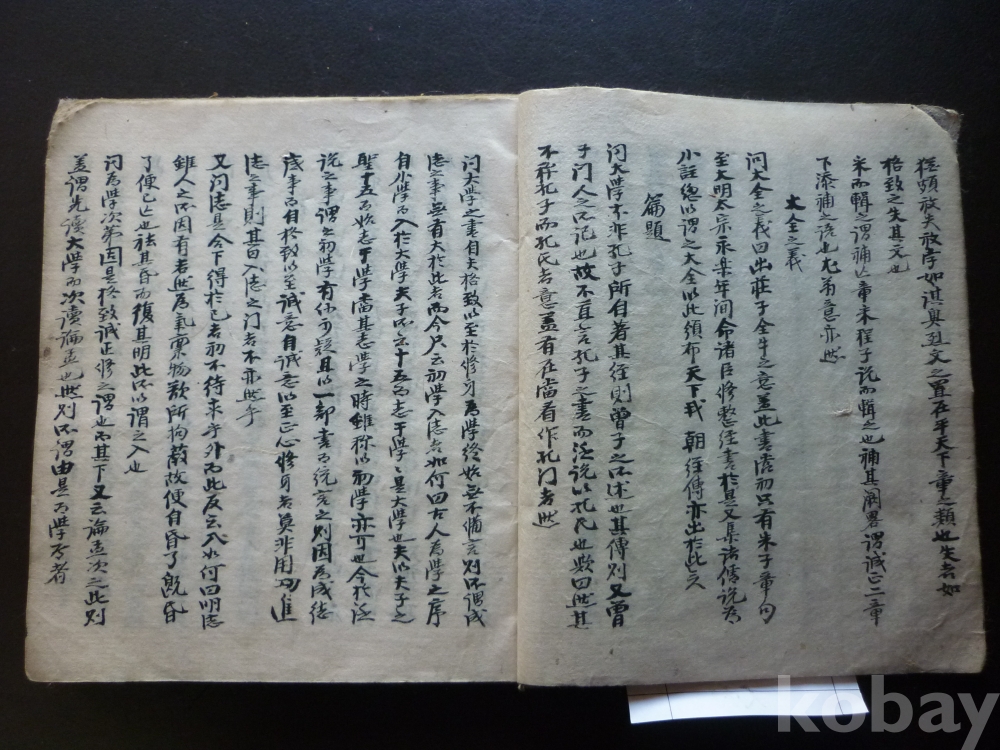 程頗放失放序如淇奧烈文之置在平天下章之類也失者如
格致之失其文也
采而輯之謂補亡章采程子說而輯之也補其闕略謂誠正二章
下添補之說也 意亦然
大全之義
問大全之義曰出莊子全牛之意盖此書處初只有朱子章句
至大明太宗永樂年間命諸臣修整經書於是又集諸儒說為
小註總以謂之大全以此頒布天下我 朝經傳亦出於此文
篇題
問大學不非孔子所自著其經則曾子之所述也其傳則又曾
子門人之所記也故不直言孔子之書而泛說以孔氏也歟曰然其
不称孔子而孔氏者意盖有在當看作孔門者然
問大學之書自夫格致以至於修身為學終始無不備言則所謂成
德之事無有大於此者而今只云初學入德者如何曰古人為學之序
自小學而入於大學夫子所云十五而志于學〻是大學也夫以夫子之
聖十五而始志于學當其志學之時雖称以初學亦可也今於泛
說之事謂之初學有何可疑且以一部書而統言之則因為成德
底事而自格致以至誠意自誠意以至正心修身者莫非用功進
德之事則其曰入德之門者不亦然乎
又問德是今下得於己者初不待求乎外而此反云入者何曰明德
雖人之所固有者然為氣禀物欲所拘蔽故便自昏了既昏
了便已亡也祛其昏而復其明此所以謂之入也
問為學次第固是格致誠正修之謂也而其下又云論孟次之此則
盖謂先讀大學而次讀論孟也然則所謂由是而學焉者
kobay